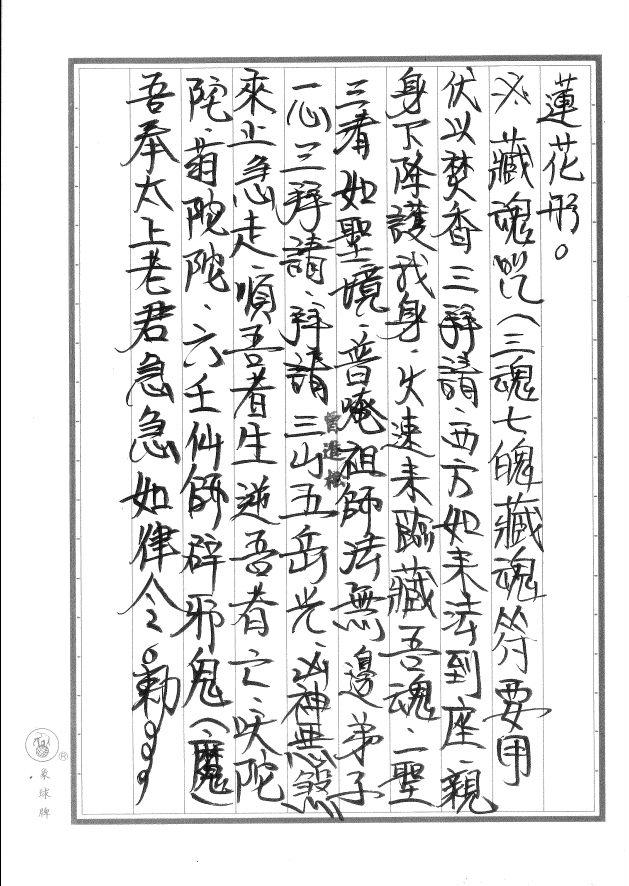 蓮花形。
※藏魂咒（三魂七魄藏魂符要用
伏以焚香三拜請、西方如來法到座、親
身下降護我身、火速來臨藏吾魂、一聖
三看如聖境、普唵祖師法無邊弟子
一心三拜請、拜請三山五岳光、凶神惡煞
來止急走、順吾者生逆吾者亡、吠陀
陀、翁陀陀、六壬仙師辟邪鬼（魔）
吾奉太上老君急急如律令。勅。。。
曾進
象球牌
®